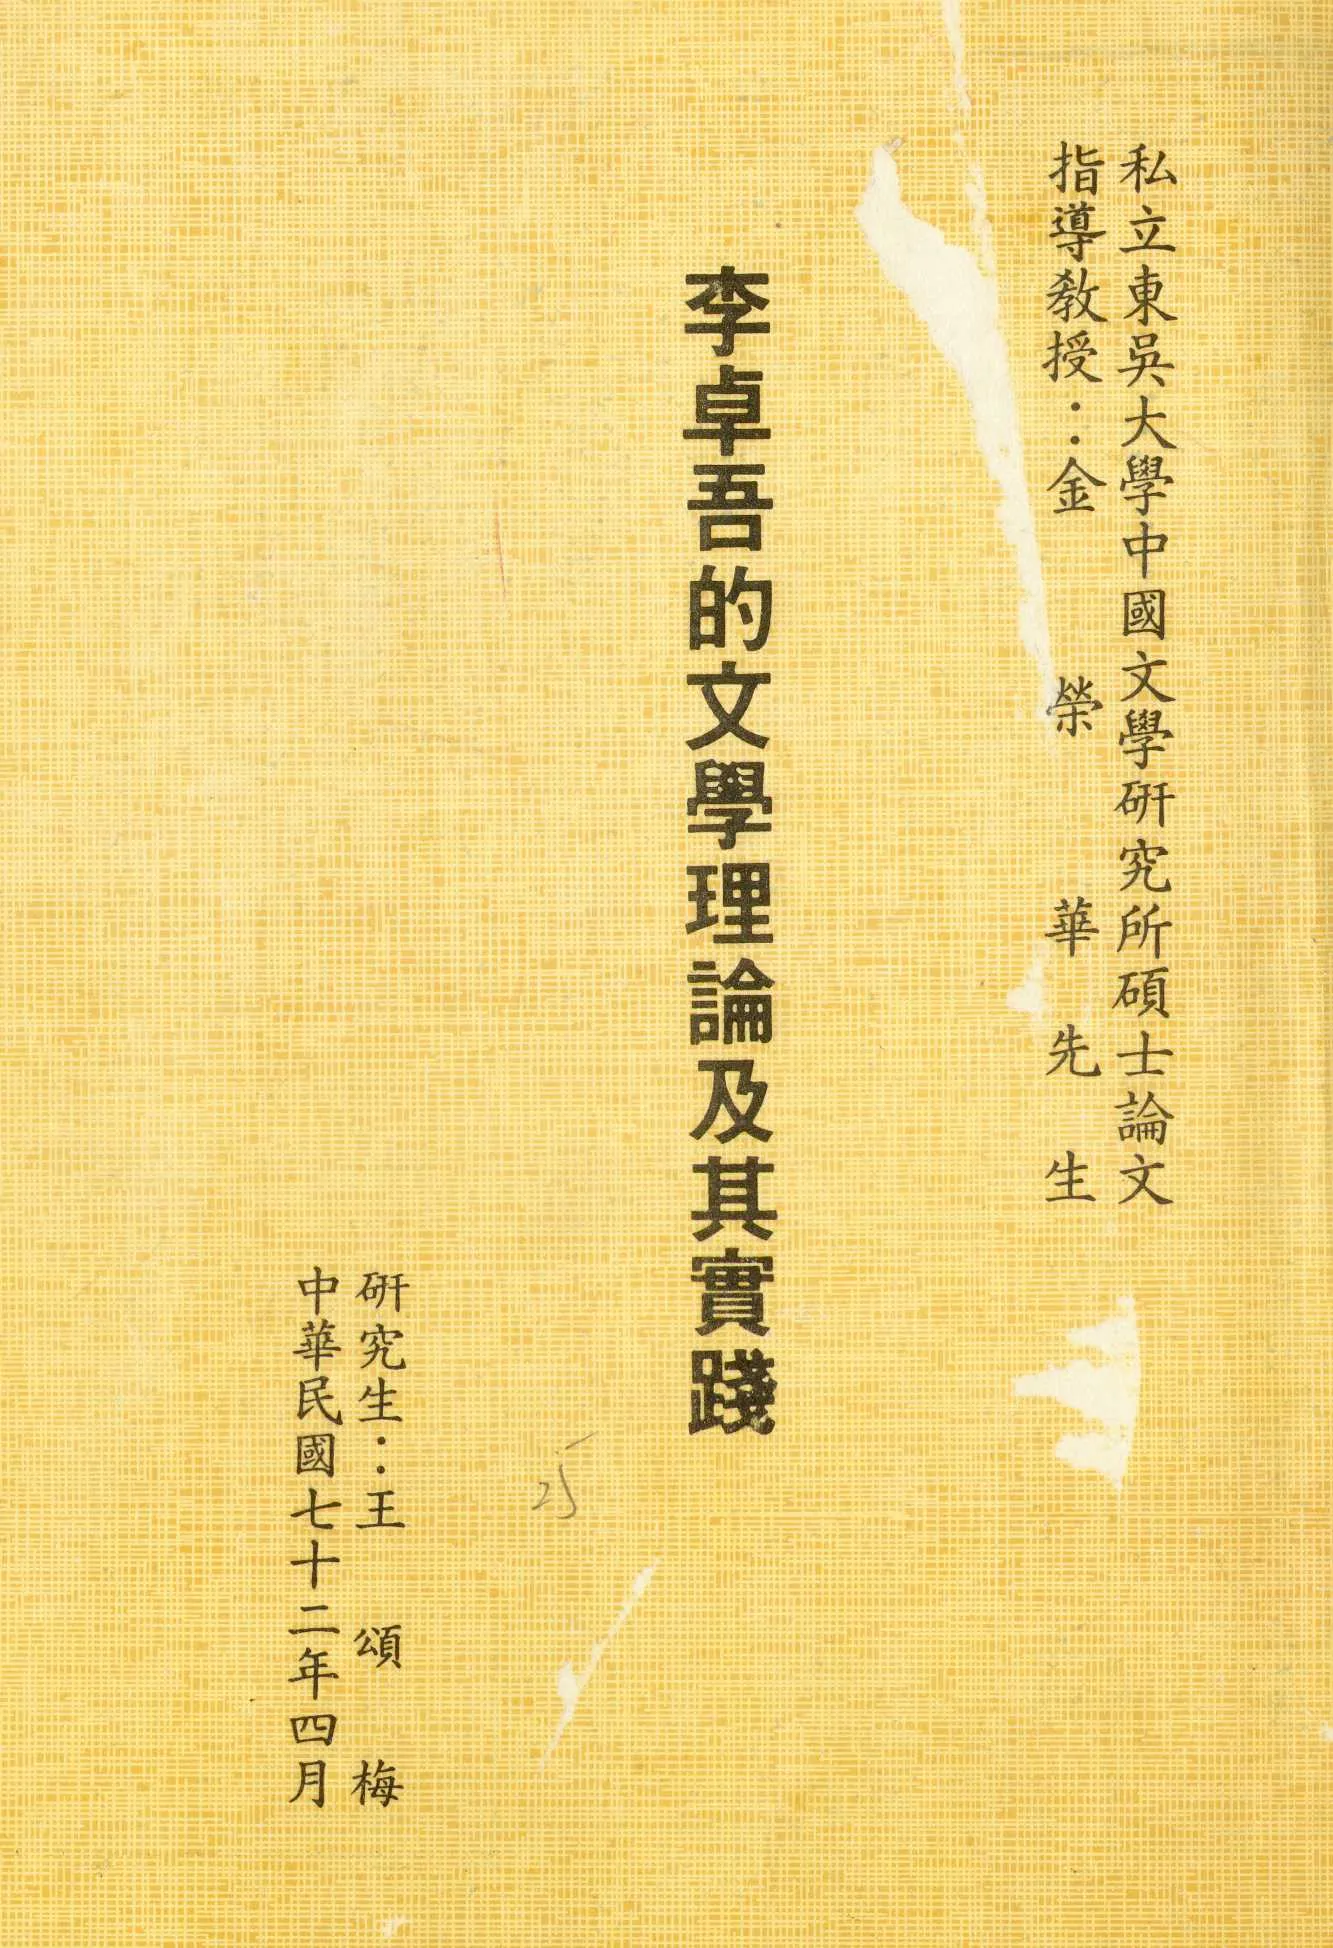 私立東吳大學中國文學硏究所碩士論文
指導教授：金榮華先生
李卓吾的文學理論及其實踐
硏究生：王頌梅
中華民國七十二年四月